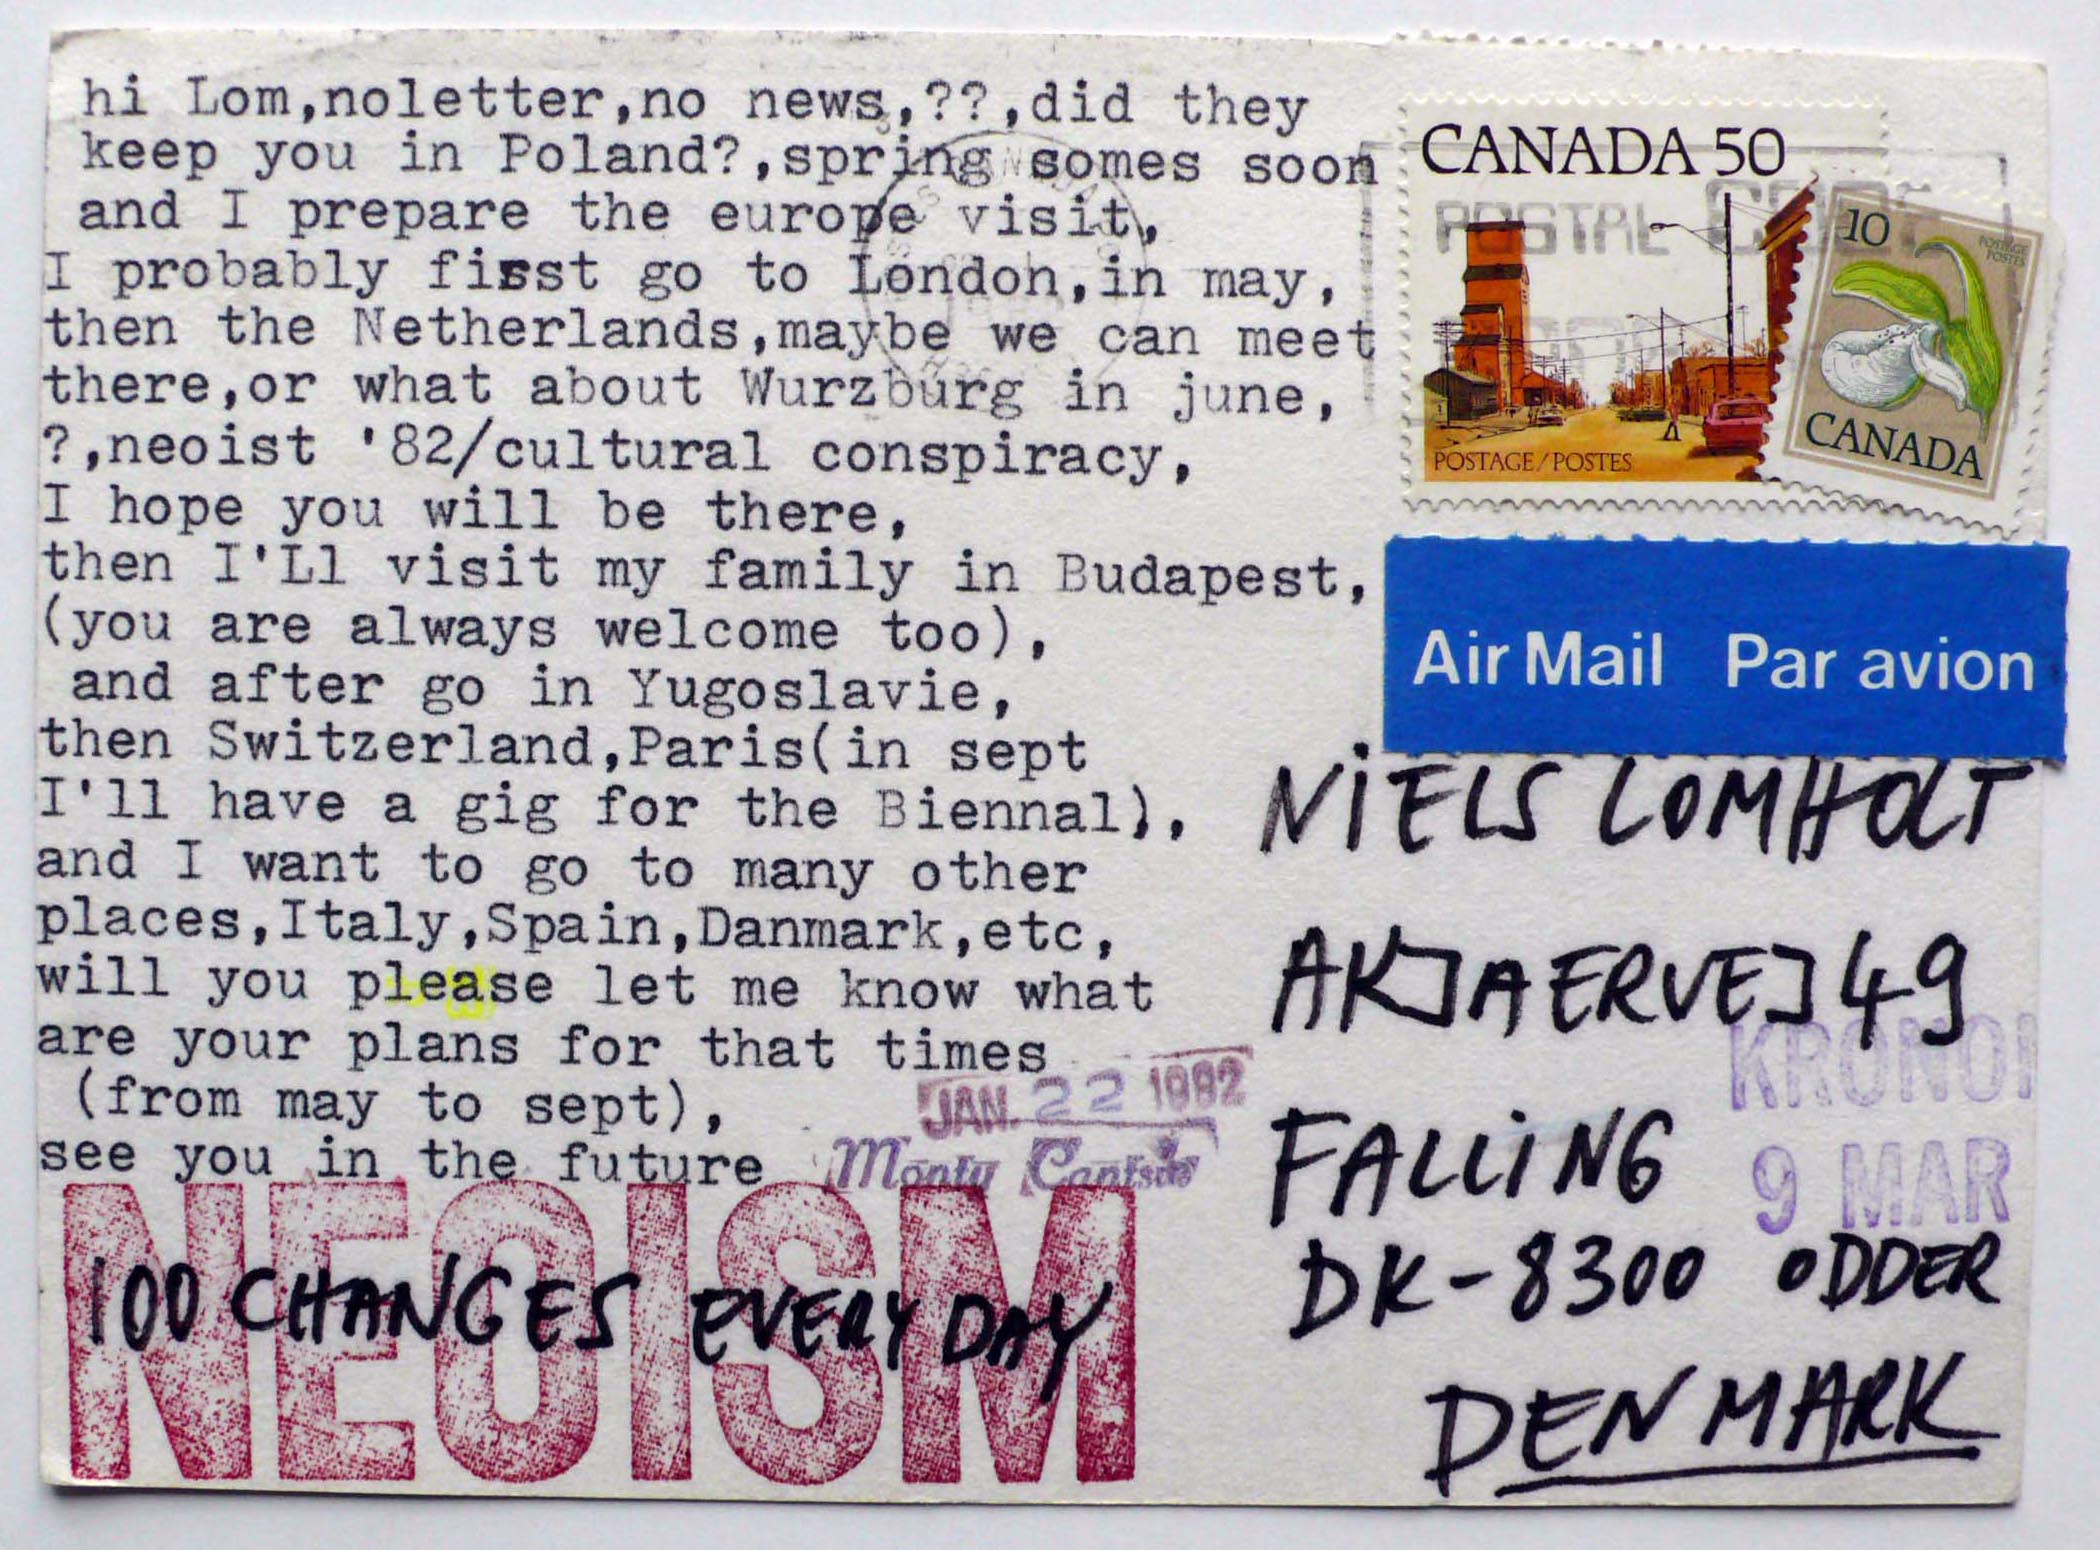 hi Lom,noletter,no news,??,did they
keep you in Poland?,spring somes soon
and I prepare the europe visit,
I probably first go to London,in may,
then the Netherlands,maybe we can meet
there,or what about Wurzburg in june,
?,neoist '82/cultural conspiracy,
I hope you will be there,
then I'Ll visit my family in Budapest,
(you are always welcome too),
and after go in Yugoslavie,
then Switzerland,Paris(in sept
I'll have a gig for the Biennal),
and I want to go to many other
places,Italy,Spain,Danmark,etc,
will you please let me know what
are your plans for that times
(from may to sept),
see you in the future
JAN. 22 1982
Monty Cantsin
NEOISM
100 CHANGES EVERY DAY
CANADA 50
POSTAGE/POSTES
10
POSTAGE
POSTES
CANADA
POSTAL CODE
Air Mail Par avion
NiELS LOMHOLT
AKJAERVEJ 49
KRONO
9 MAR
FALLiNG
DK-8300 ODDER
DENMARK